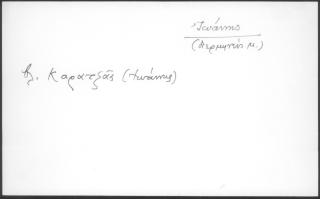 Ἰωάννης
(Δερμητζής μ.)
βλ. Καρατζᾶς (Ἰωάννης)